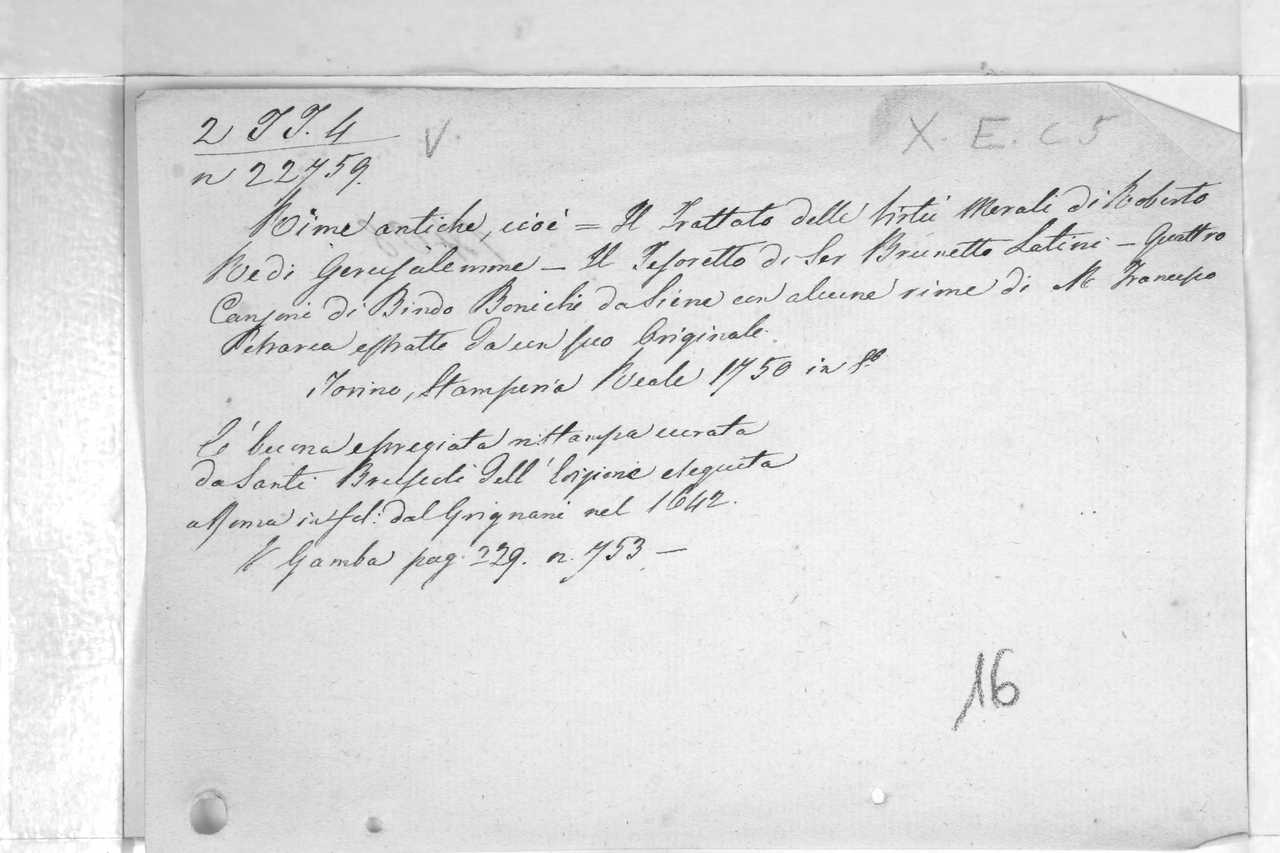 2 TT. 4 V. X. E. C 5
n 22759.
Rime antiche, cioè = Il Trattato delle Virtù Morali di Roberto
Re di Gerusalemme – Il Tesoretto di Ser Brunetto Latini – Quattro
Canzoni di Bindo Bonichi da Siena con alcune rime di M Francesco
Petrarca estratte da un suo Originale.
Torino, Stamperia Reale 1750 in 8.º
È buona e pregiata ristampa curata
da Santi dell' Edizione eseguita
a Roma in fol: dal Grignani nel 1642.
V Gamba pag. 229. n. 753 –
16